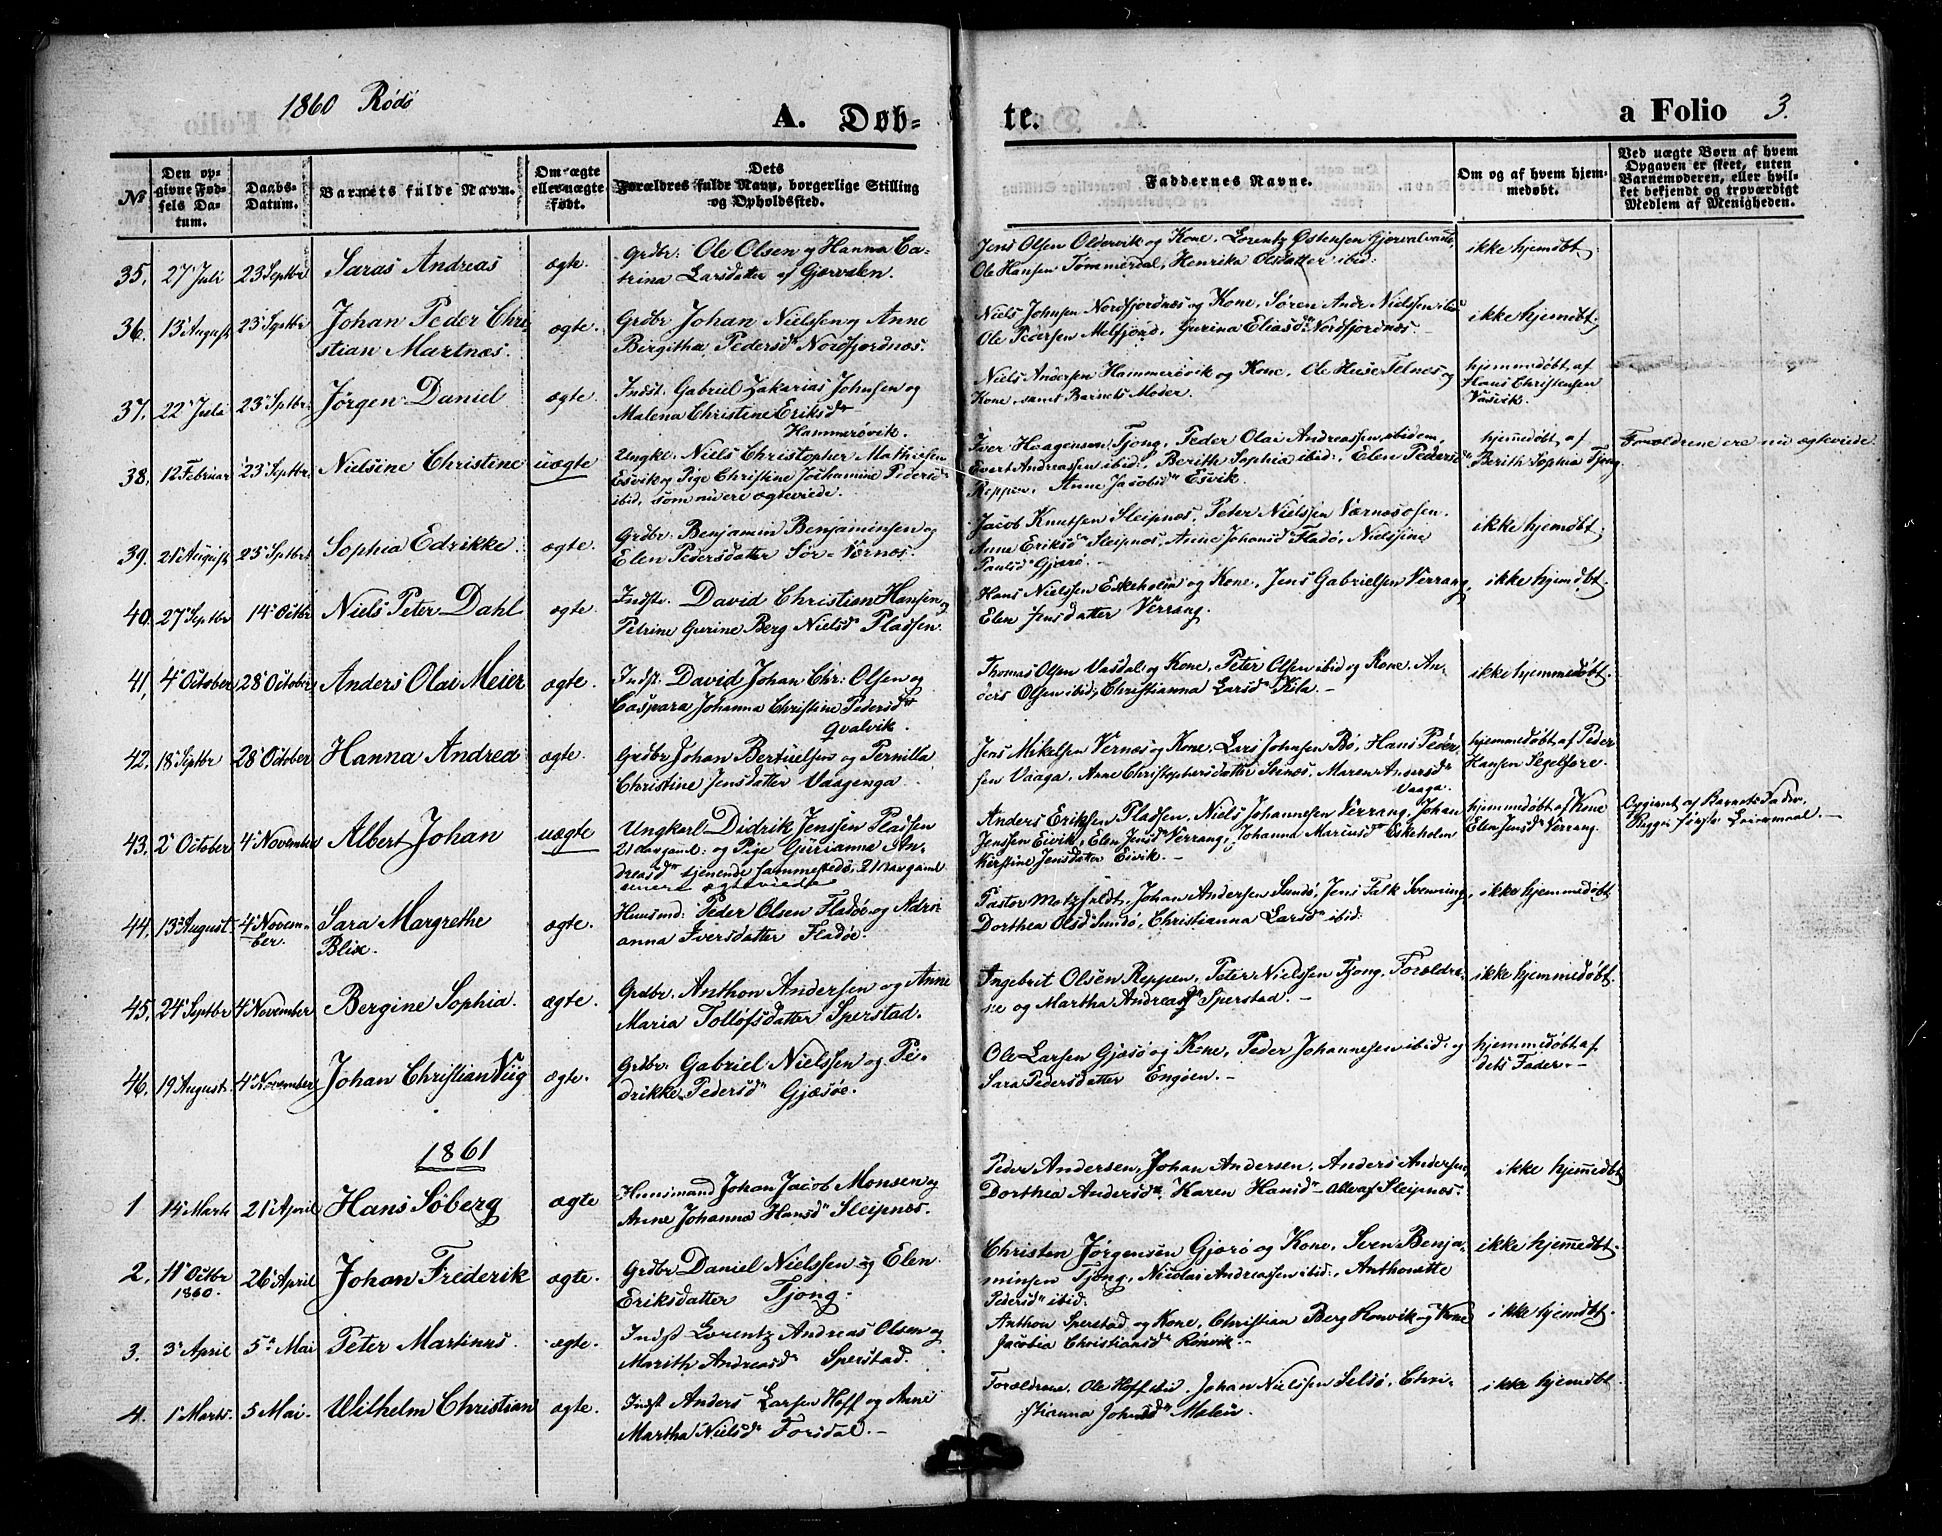 1860 Rödö
A. Døb-
te.
a Folio 3.
№
Den op-
givne Fød-
sels Da-
tum.
Daabs-
Datum.
Barnets fulde Navn.
Om ægte
eller uægte
født.
Dets
Forældres fulde Navn, borgerlige Stilling
og Opholdssted.
Faddernes Navne.
Om og af hvem hjem-
medøbt.
Ved uægte Børn af hvem
Opgaven er skeet, enten
Barnemoderen, eller hvil-
ket bekjendt og troværdigt
Medlem af Menigheden.
35. 27 Juli 23 Septbr Saras Andreas ægte. Grdbr. Ole Olsen og Hanna Ca-
trina Larsdatter af Gjervalen.
Jens Olsen Oldervik og Kone, Lorentz Østensen
Ole Hansen Tømmerdal, Henrika Olsdatter ibid:
ikke hjemdøbt.
36. 13 August 23 Septbr Johan Peder Chri
stian Martnæs. ægte. Grdbr Johan Nielssen og Anne
Birgitha Pedersdr Nordfjordnæs.
Niels Johnsen Nordfjordnæs og Kone, Søren Andr Nielssen ibid
Ole Pedersen Melfjord, Gurina Eliasdr Nordfjordnæs. –
ikke hjemdøbt.
37. 22 Juli 23 Sptbr. Jørgen Daniel ægte. Indst. Gabriel Zakarias Johnsen og
Malena Christine Eriksdr
Hammerövik.
Niels Andersen Hammerövik og Kone, Ole Huse Telnæs og
Kone, samt Barnets Moder.
hjemmedøbt af
Hans Christensen
Vasvik.
38. 12 Februar 23 Septbr. Nielsine Christine uægte Ungkl. Niels Christopher Mathiesen
Esvik og Pige Christine Johamine Pedersdr
ibid, som nu ere ægteviede.
Iver Haagensen Tjong, Peder Olai Andreassen ibidem,
Evert Andreassen ibid:, Berith Sophia ibid:, Elen Pedersdr
Reppen, Anne Jacobsdr Esvik.
hjemmedøbt af
Berith Sophia Tjong.
Forældrene ere nu ægteviede.
39. 21 August 23 Septbr Sophia Edrikke. ægte. Grdbr. Benjamin Benjaminsen og
Elen Pedersdatter Sør-Værnæs.
Jacob Knutsen Sleipnæs, Peter Nielssen Værnæsosen.
Anne Eriksdr Sleipnæs, Anne Johansdr Fladö, Nielssine
Paulsdr Gjærö.
ikke hjemdøbt.
40. 27 Septbr 14 Octbr Niels Peter Dahl ægte. Indste. David Christian Hansen og
Petrine Gurine Berg Nielsdr Pladsen.
Hans Nielssen Eskeholm og Kone, Jens Gabrielsen Verrang,
Elen Jensdatter Verrang.
ikke hjemdøbt.
41. 4 October 28 October Anders Olai Meier ægte. Indst. David Johan Chr. Olsen og
Caspara Johanna Christine Pedersdr
Qvalvik.
Thomas Olsen Vasdal og Kone, Peter Olsen ibid og Kone, An-
ders Olsen ibid, Christianna Larsdr Kila. –
ikke hjemmedøbt.
42. 18 Septbr 28 October Hanna Andrea ægte. Grdbr Johan Bertuelsen og Pernilla
Christine Jensdatter Vaagenga.
Jens Mikelsen Vernæs og Kone, Lars Johnsen Bö, Hans Peder-
sen Vaaga, Anne Christophersdatter Seines, Maren Andersdr
Vaaga.
hjemmedøbt af Peder
Hansen Segelföre.
43. 2 October 4 November Albert Johan uægte Ungkarl Didrik Jenssen Pladsen
21 aar gaml: og Pige Gurianna An-
dreasdr tjenende sammesteds, 21 aar gaml
senere ægteviede
Anders Eriksen Pladsen, Niels Johannesen Verrang, Johan
Jenssen Eivik, Elen Jensdr Verrang, Johanna Mariusdr Eskeholm
Kirstine Jensdatter Eivik. –
hjemmedøbt af Kone
Elen Jensdr Verrang.
Opgivet af Barnets Fader.
Begges første Leiermaal. –
44. 13 August 4 Novem-
ber. Sara Margrethe
Blix. ægte. Huusmd: Peder Olsen Fladöe og Adri
anna Iversdatter Fladöe.
Pastor Motzfeldt, Johan Andersen Sundö, Jens Falk Svenning,
Dorthea Olsdr Sundö, Christianna Larsdr ibid.
ikke hjemmedøbt
45. 24 Septbr 4 November Bergine Sophia. ægte. Grdbr. Anthon Andersen og Anne
Maria Tollofsdatter Sperstad.
Ingebrit Olsen Reppen, Peter Nielssen Tjong, Forældre-
ne og Martha Andreasdr Sperstad. –
ikke hjemmedøbt.
46. 19 August. 4 November Johan Christian Viig ægte. Grdbr. Gabriel Nielssen og Pe-
drikke Pedersdr Gjæsöe.
Ole Larsen Gjæsö og Kone, Peder Johannesen ibid: og
Sara Pedersdatter Engöen. –
hjemmedøbt af
dets Fader. –
1861
1 14 Marts 21 April Hans Söberg ægte Huusmand Johan Jacob Monsen og
Anne Johanna Hansdr Sleipnæs.
Peder Andersen, Johan Andersen, Anders Andersen,
Dorthea Andersdr, Karen Hansdr – Alle af Sleipnæs.
ikke hjemmedøbt
2. 11 Octbr
1860. 26 April Johan Frederik ægte. Grdbr Daniel Nielssen og Elen
Eriksdatter Tjong.
Christen Jørgensen Gjærö og Kone, Sven Benja-
minsen Tjong, Nicolai Andreassen ibid:, Anthonette
Pedersdr ibid:
ikke hjemmedøbt.
3. 3 April 5 Mai Peter Martinus. ægte. Indst Lorentz Andreas Olsen og
Marith Andreasdr Sperstad.
Anthon Sperstad og Kone, Christian Berg Ronvik og Kone
Jacobia Christiansdr Rönvik. –
ikke hjemdøbt.
4. 1 Marts. 5 Mai. Wilhelm Christian ægte. Indst Anders Larsen Hoff og Ane
Martha Nielsdr Forsdal. –
Forældrene, Ole Hoff ibid. Johan Nielssen Selsö, Chri-
stianna Johnsdr
ikke hjemdøbt.